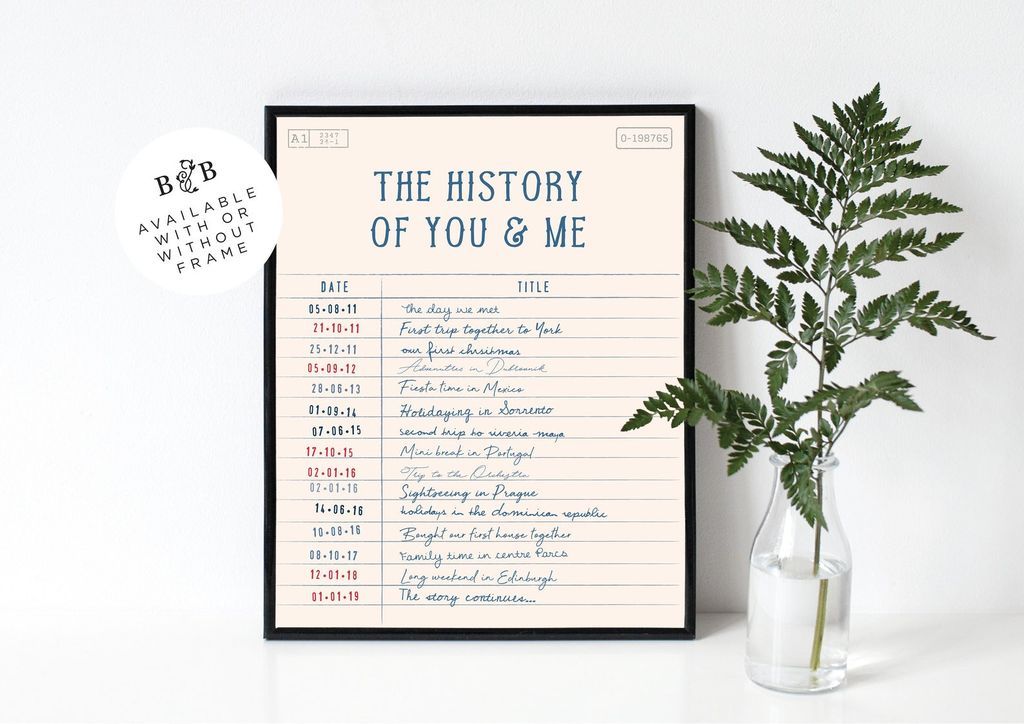 A1 2347
24-1
0-198765
THE HISTORY
OF YOU & ME
B&B
AVAILABLE
WITH OR
WITHOUT
FRAME
DATE TITLE
05•08•11 the day we met
21•10•11 First trip together to York
25•12•11 our first christmas
05•09•12 Adventures in Dubrovnik
28•06•13 Fiesta time in Mexico
01•09•14 Holidaying in Sorrento
07•06•15 second trip to riveria maya
17•10•15 Mini break in Portugal
02•01•16 Trip to the Orchestra
02•01•16 Sightseeing in Prague
14•06•16 holidays in the dominican republic
10•08•16 Bought our first house together
08•10•17 Family time in centre Parcs
12•01•18 Long weekend in Edinburgh
01•01•19 The story continues...